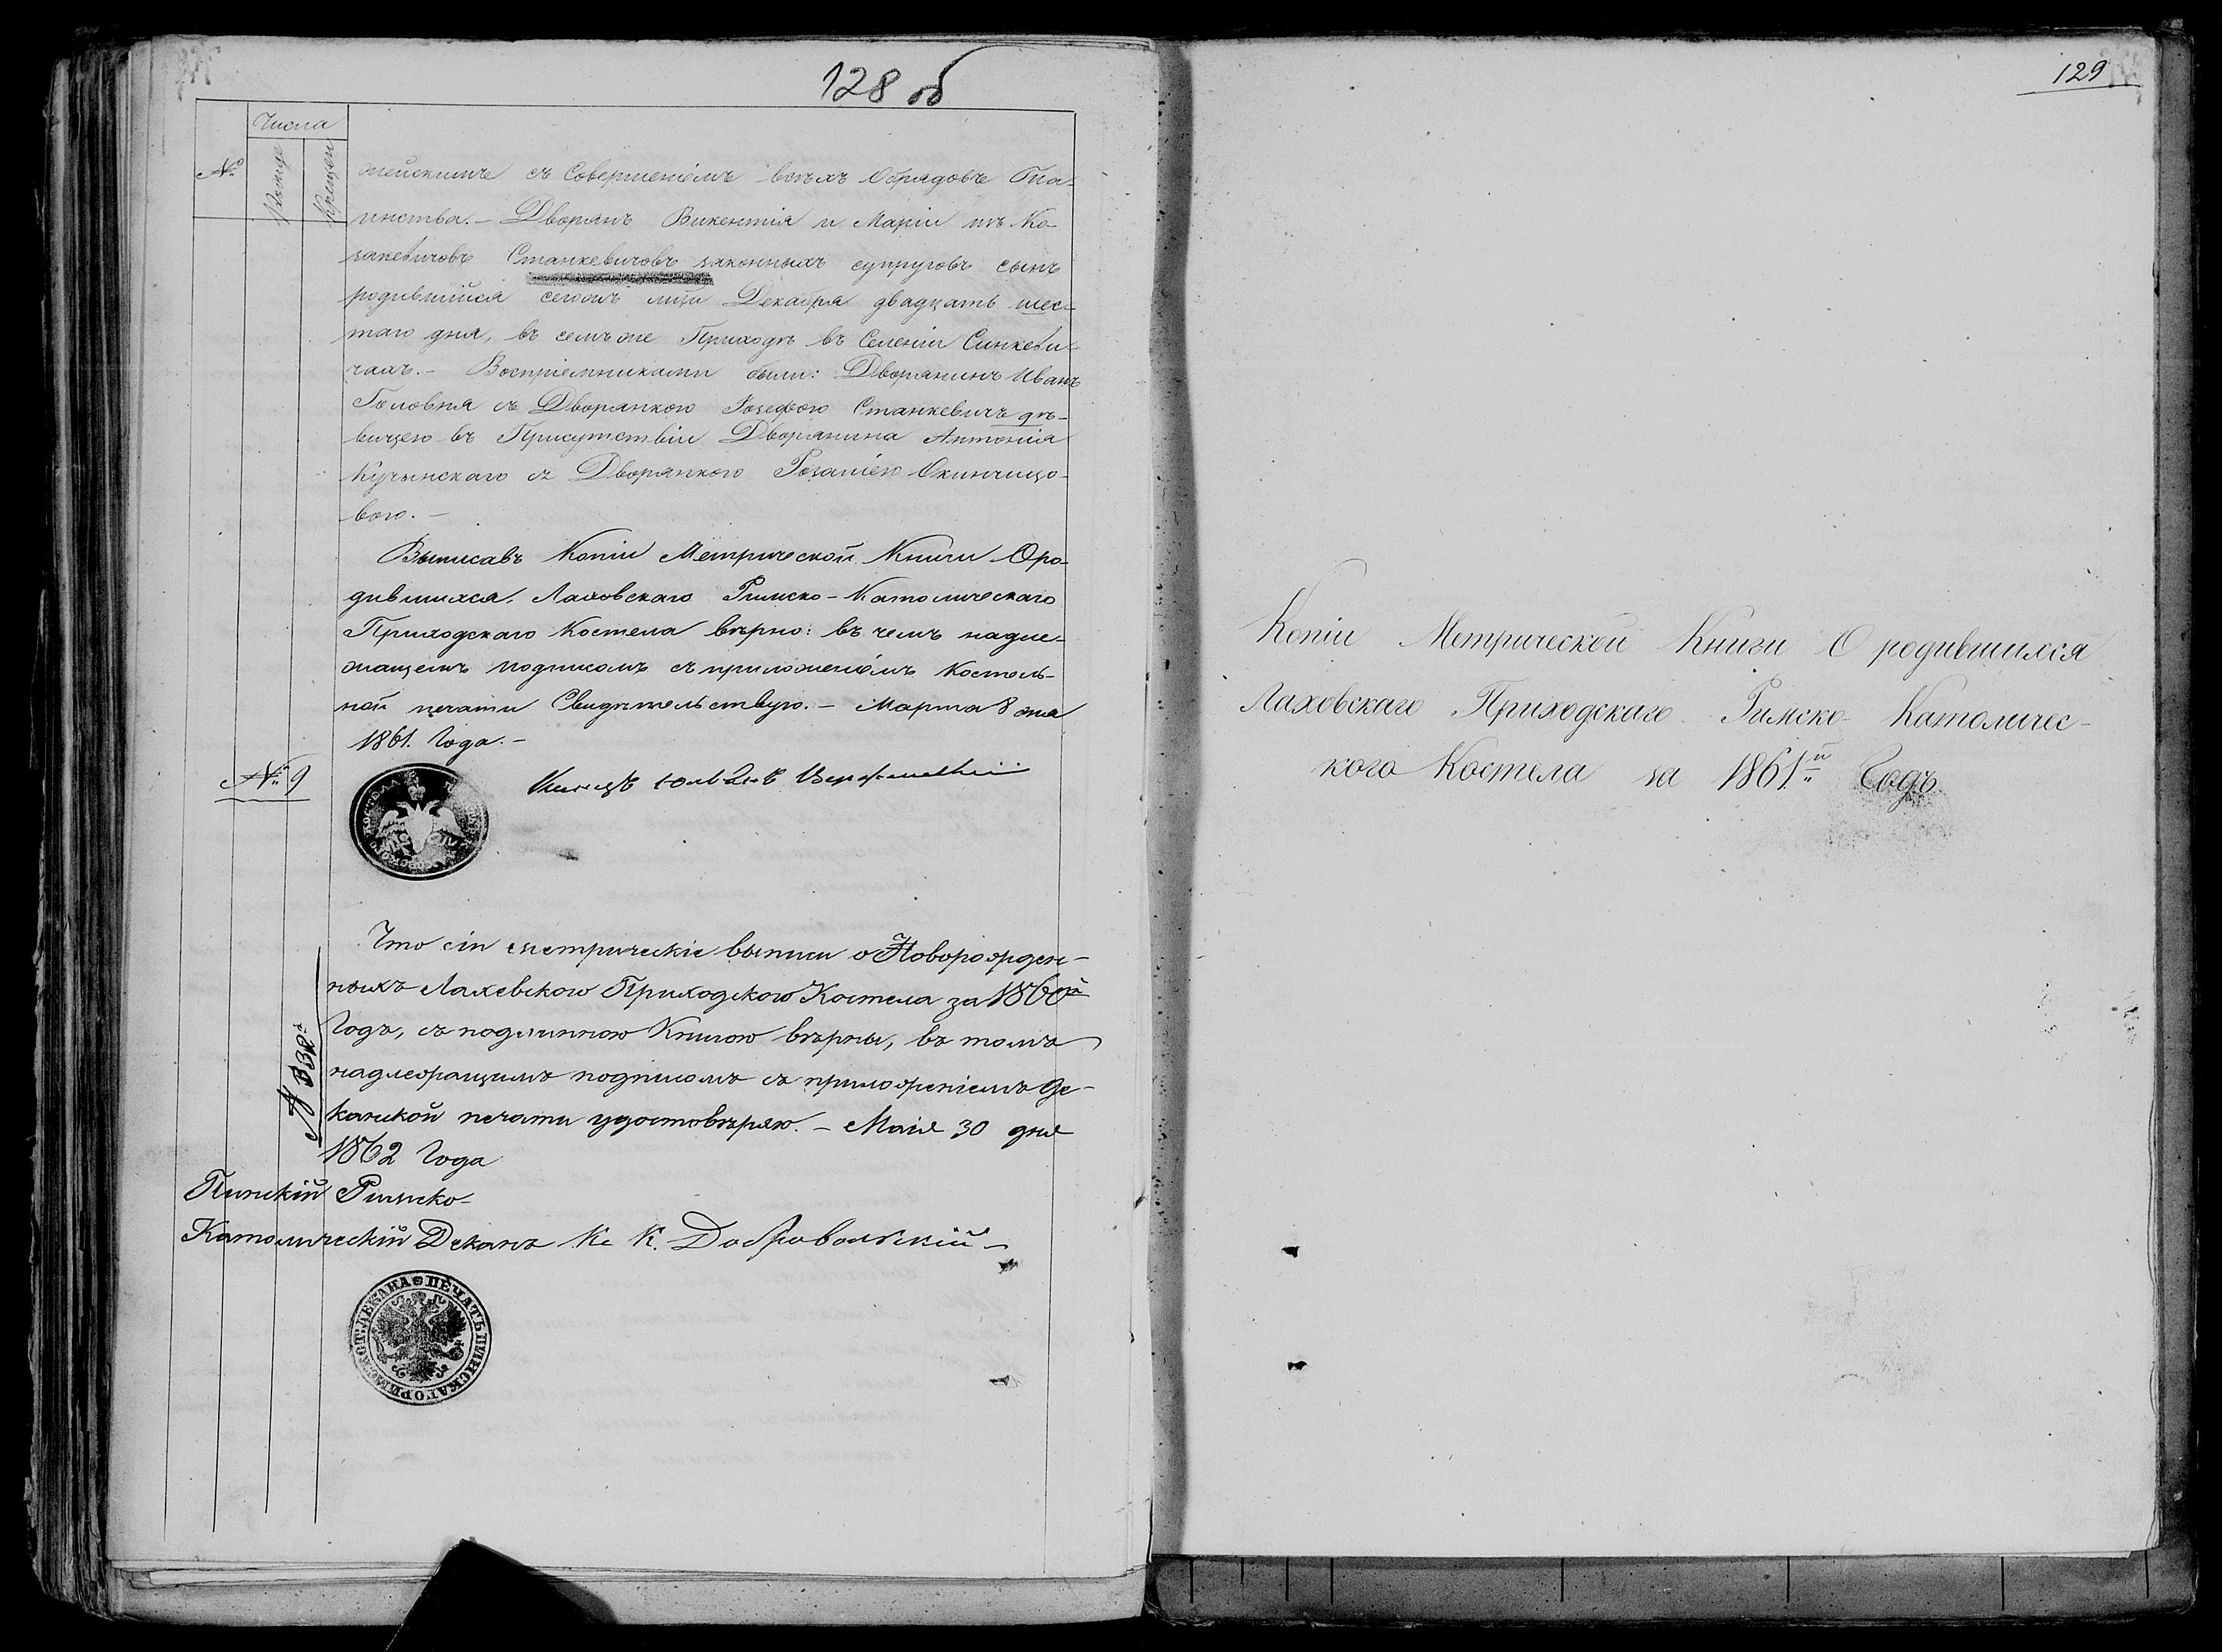 128 об
Числа
№
Рожде
Крещен
тейскимъ съ Совершеніемъ всѣхъ Обрядовъ Таи-
инства.- Дворянъ Викентія и Маріи изъ Ко-
закевичовъ Станкевичовъ законныхъ супруговъ сынъ
родившійся сегожъ Декабря двадцать шес-
таго дня, въ семъ же Приходѣ въ Селеніи Синкеви-
чахъ.- Воспріемниками были: Дворянинъ Иванъ
Головня съ Дворянкою Іозефою Станкевичъ дѣ-
вицею въ Присутствіи Дворянина Антонія
Кучынскаго съ Дворянкою Розаліею Окинчицо-
вою.-
Выписавъ Копіи Метрической Книги О ро-
дившихся, Лаховскаго Римско-Католическаго
Приходскаго Костела вѣрно: въ чемъ надле-
жащемъ подписомъ съ приложеніемъ Костель-
ной печати Свидѣтельствую.- Марта 8 дня
1861. Года.-
№ 9
Что сіи метрическіе выписи о Новорожден-
ныхъ Лахевского Приходского Костела за 1860й
Годъ, съ подлинною Книгою вѣрны, въ томъ
надлежащимъ подписомъ съ приложеніемъ Де-
канской печати удостовѣряю.- Маія 30 дня
1862 Года
Пинскій Римско-
Католическій Деканъ Кс К. Добровольскій-
ПЕЧАТЬ ПИНСКАГО РИМСКО КАТ: ДЕКАНА
129
Копіи Метрической Книги О родившихся
Лаховскаго Приходскаго Римско-Католичес-
кого Костела за 1861й Годъ